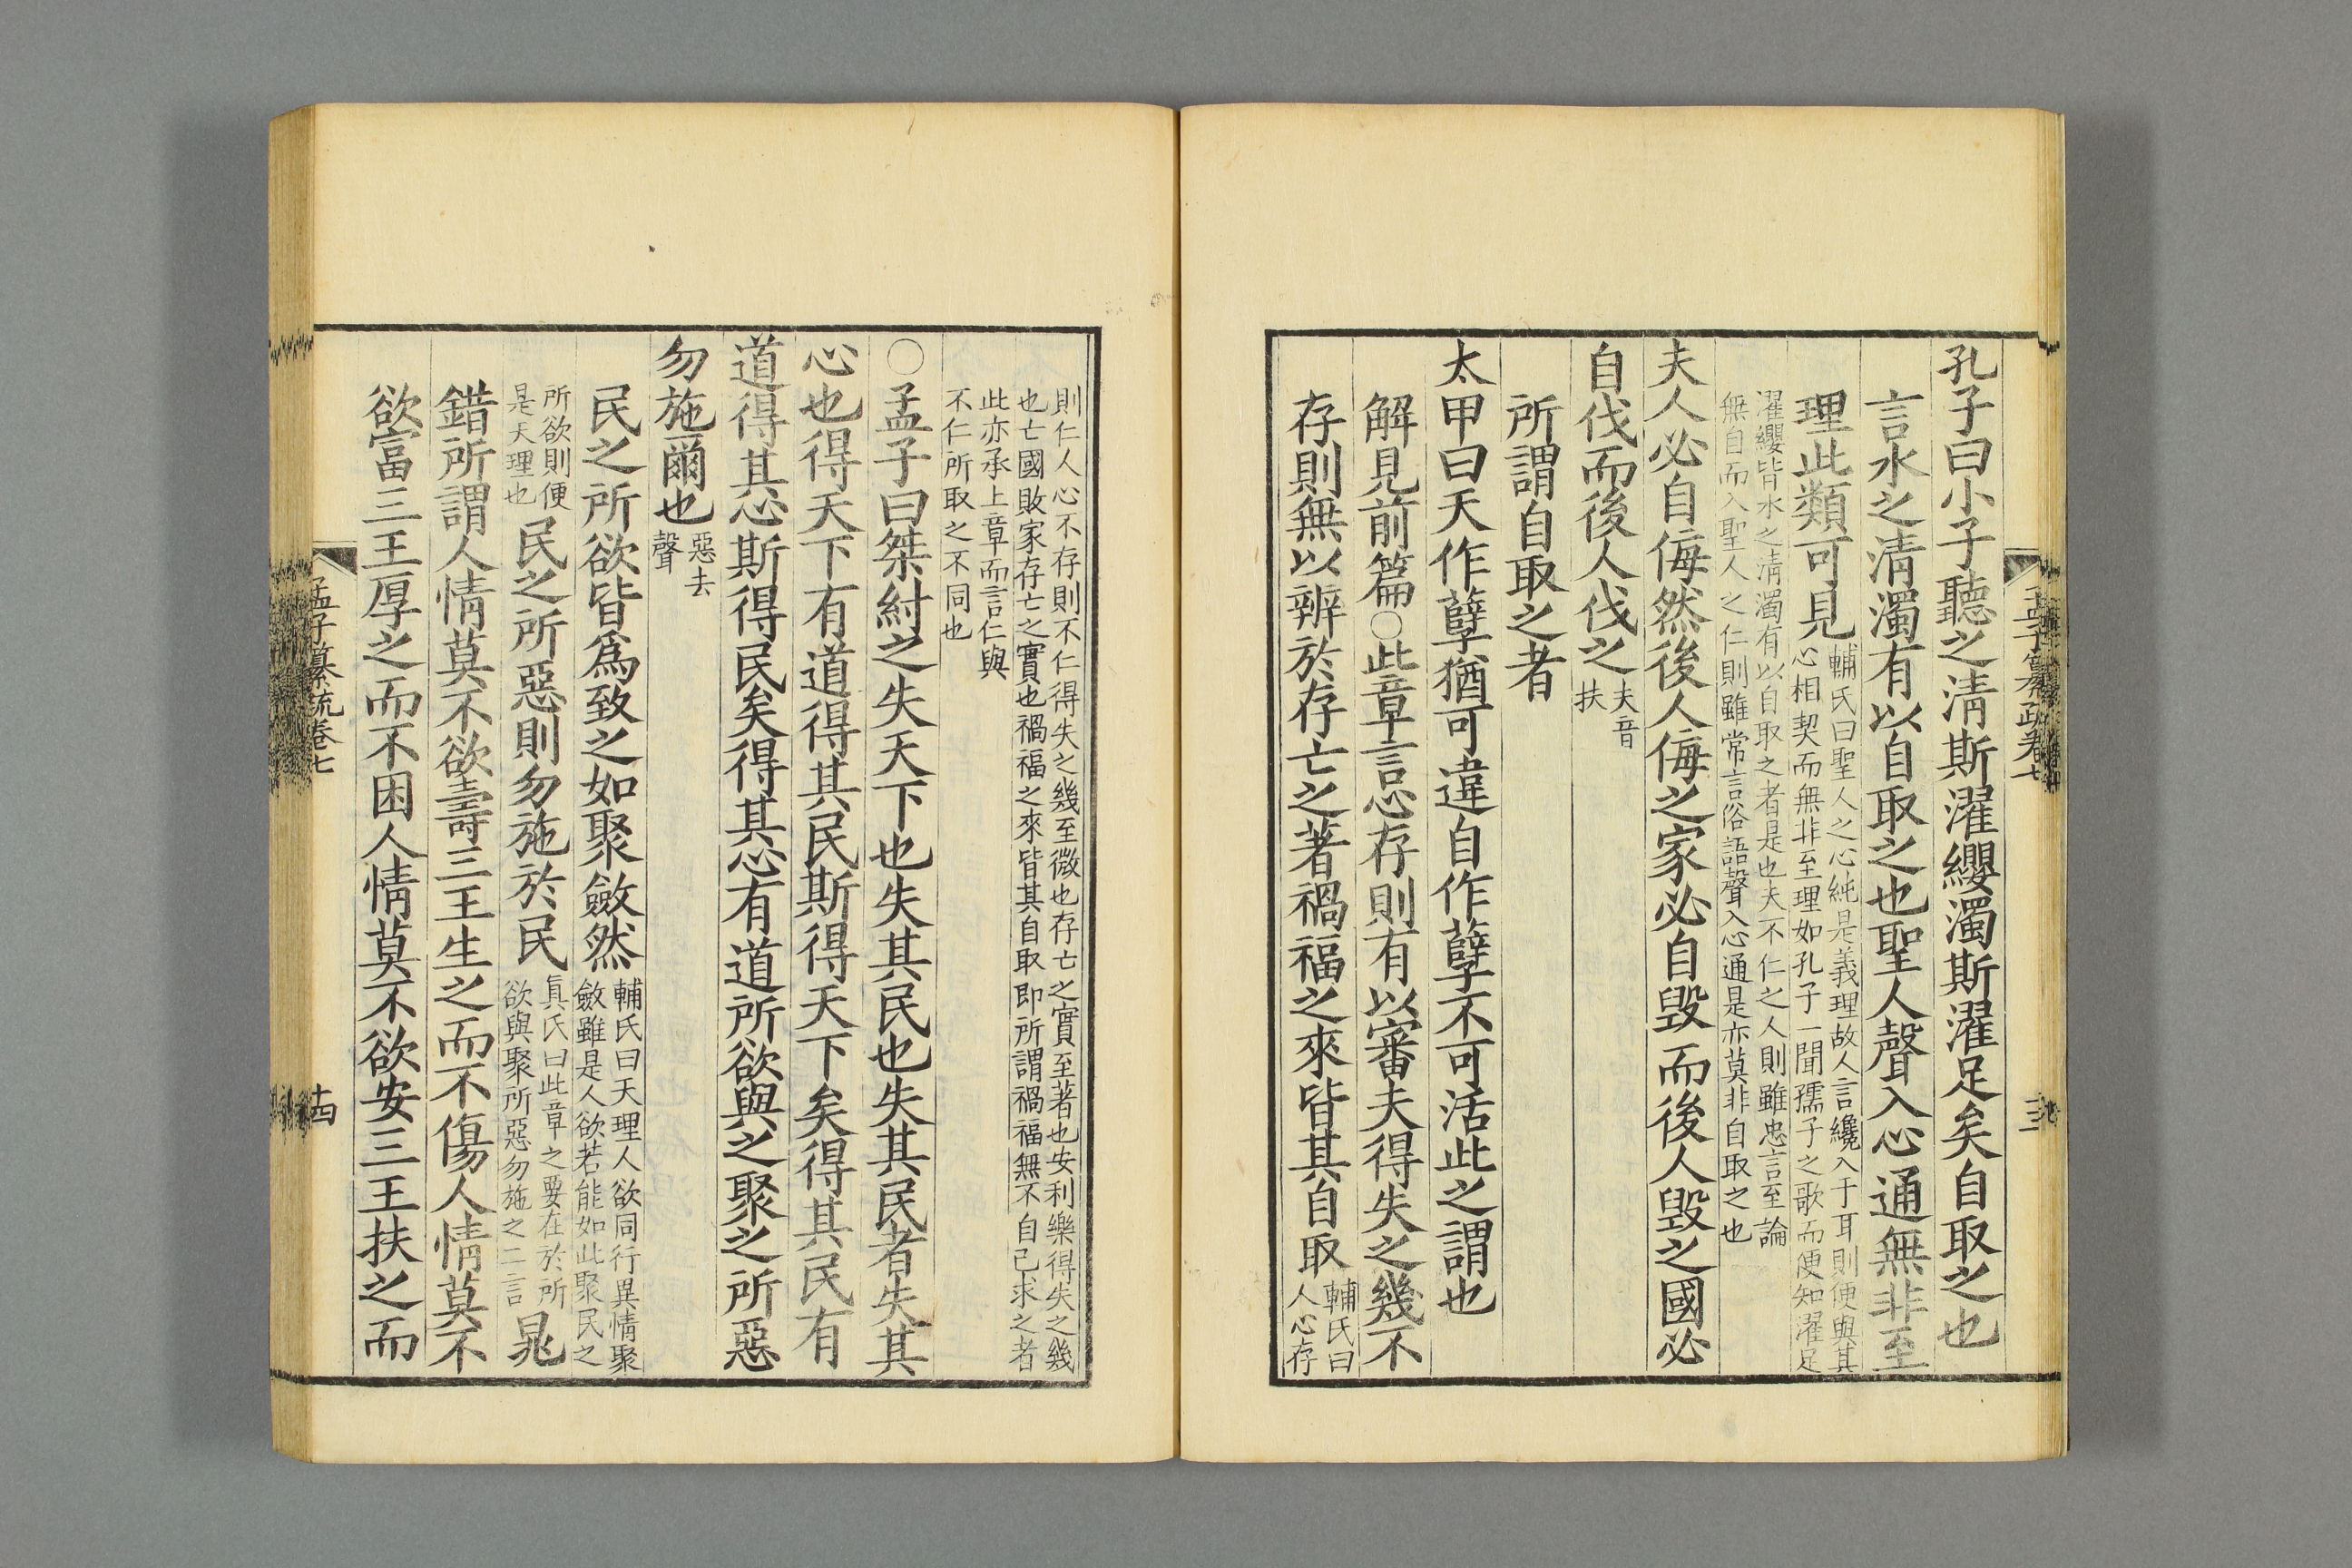 孔子曰小子聽之淸斯濯纓濁斯濯足矣自取之也
言水之淸濁有以自取之也聖人聲入心通無非至
理此類可見
輔氏曰聖人之心純是義理故人言纔入于耳則便與其
心相契而無非至理如孔子一聞孺子之歌而便知濯足
濯纓皆水之淸濁有以自取之者是也夫不仁之人則雖忠言至論
無自而入聖人之仁則雖常言俗語聲入心通是亦莫非自取之也
夫人必自侮然後人侮之家必自毀而後人毀之國必
自伐而後人伐之
夫音
扶
所謂自取之者
太甲曰天作孽猶可違自作孽不可活此之謂也
解見前篇○此章言心存則有以審夫得失之幾不
存則無以辨於存亡之著禍福之來皆其自取
輔氏曰
人心存
則仁人心不存則不仁得失之幾至微也存亡之實至著也安利樂得失之幾
也亡國敗家存亡之實也禍福之來皆其自取即所謂禍福無不自己求之者
此亦承上章而言仁與
不仁所取之不同也
○孟子曰桀紂之失天下也失其民也失其民者失其
心也得天下有道得其民斯得天下矣得其民有
道得其心斯得民矣得其心有道所欲與之聚之所惡
勿施爾也
惡去
聲
民之所欲皆爲致之如聚斂然
輔氏曰天理人欲同行異情聚
斂雖是人欲若能如此聚民之
所欲則便
是天理也
民之所惡則勿施於民
眞氏曰此章之要在於所
欲與聚所惡勿施之二言
晁
錯所謂人情莫不欲壽三王生之而不傷人情莫不
欲富三王厚之而不困人情莫不欲安三王扶之而
孟子纂疏卷七
十四